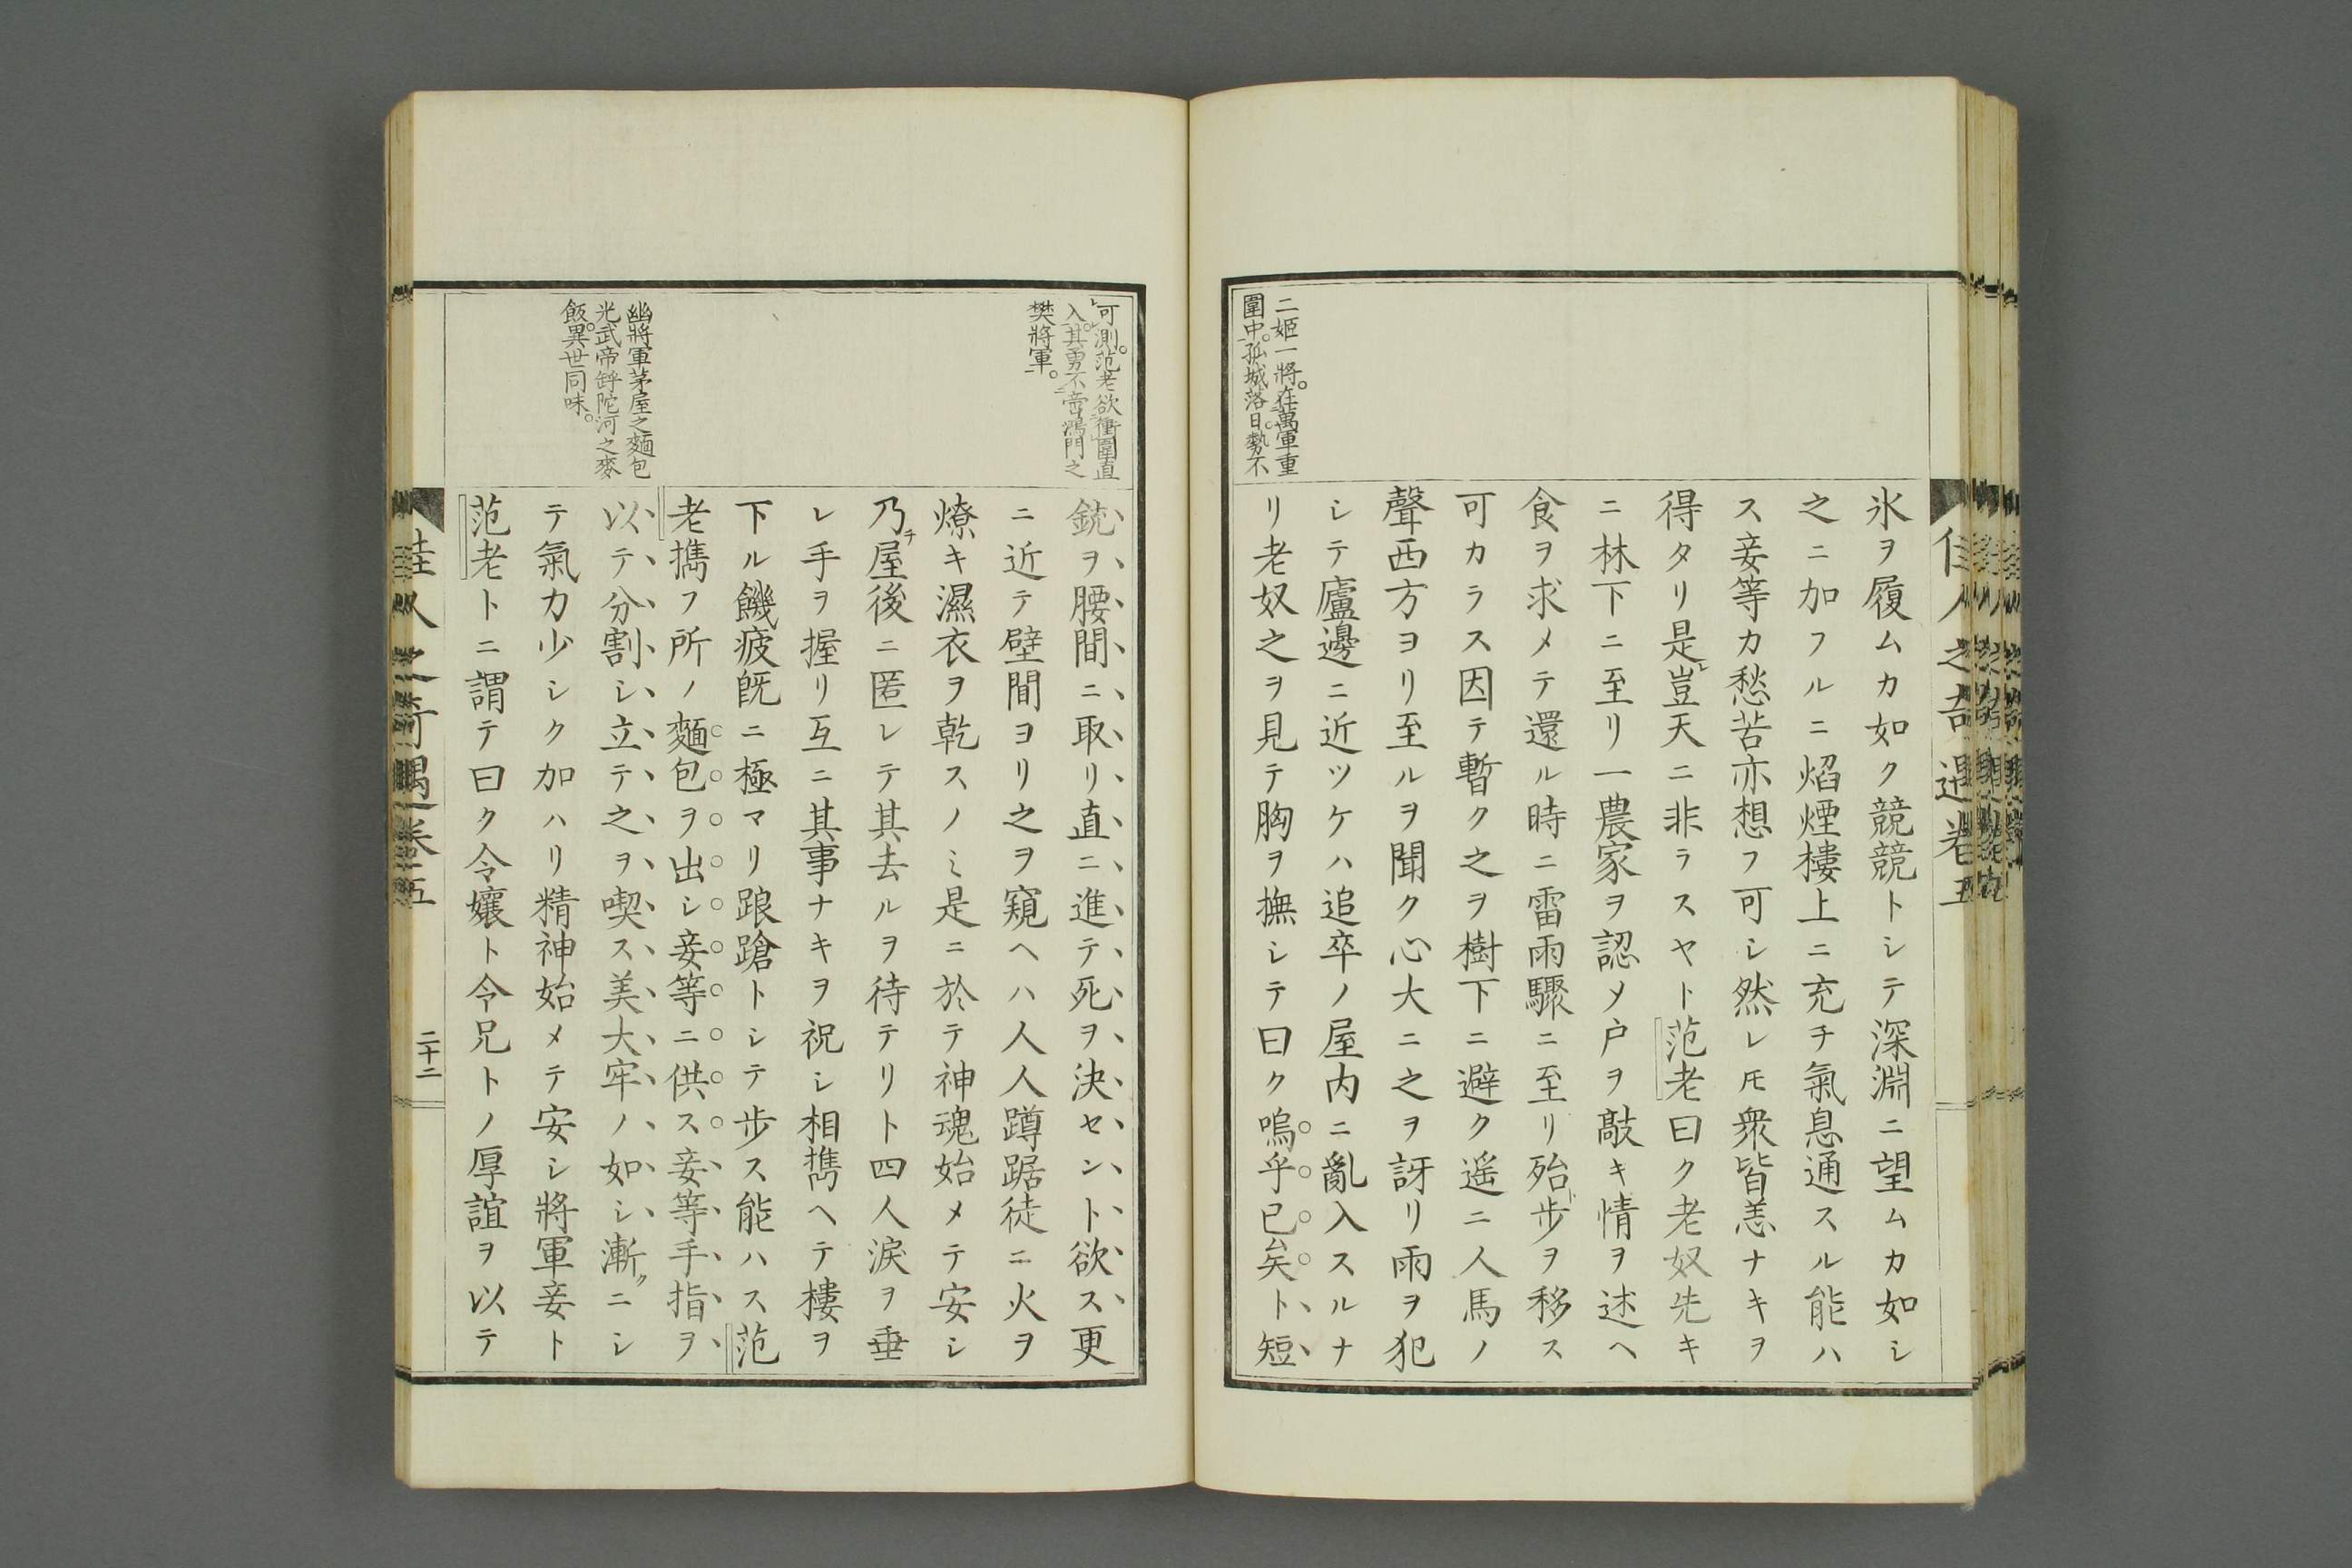 佳人之奇遇卷五
氷ヲ履ムカ如ク競競トシテ深淵ニ望ムカ如シ
之ニ加フルニ焰煙樓上ニ充チ氣息通スル能ハ
ス妾等カ愁苦亦想フ可シ然レ𪜈衆皆恙ナキヲ
得タリ是レ豈天ニ非ラスヤト范老曰ク老奴先キ
ニ林下ニ至リ一農家ヲ認メ戸ヲ敲キ情ヲ述ヘ
食ヲ求メテ還ル時ニ雷雨驟ニ至リ殆ト步ヲ移ス
可カラス因テ暫ク之ヲ樹下ニ避ク遥ニ人馬ノ
聲西方ヨリ至ルヲ聞ク心大ニ之ヲ訝リ雨ヲ犯
シテ廬邊ニ近ツケハ追卒ノ屋内ニ亂入スルナ
リ老奴之ヲ見テ胸ヲ撫シテ曰ク嗚乎已ム矣ト短
二姬一將。在萬軍重
圍中。孤城落日。勢不
可測。范老欲衝圍直
入。其勇不啻鴻門之
樊將軍。
銃ヲ腰間ニ取リ直ニ進テ死ヲ決セント欲ス更
ニ近テ壁間ヨリ之ヲ窺ヘハ人人蹲踞徒ニ火ヲ
燎キ濕衣ヲ乾スノミ是ニ於テ神魂始メテ安シ
乃チ屋後ニ匿レテ其去ルヲ待テリト四人淚ヲ垂
レ手ヲ握リ互ニ其事ナキヲ祝シ相携ヘテ樓ヲ
下ル饑疲旣ニ極マリ踉蹌トシテ步ス能ハス范
老携フ所ノ麵包ヲ出シ妾等ニ供ス妾等手指ヲ
以テ分割シ立テ之ヲ喫ス美大牢ノ如シ漸クニシ
テ氣力少シク加ハリ精神始メテ安シ將軍妾ト
范老トニ謂テ曰ク令孃ト令兄トノ厚誼ヲ以テ
幽將軍茅屋之麵包
光武帝虖陀河之麥
飯。異世同味。
佳人之奇遇卷五
二十二